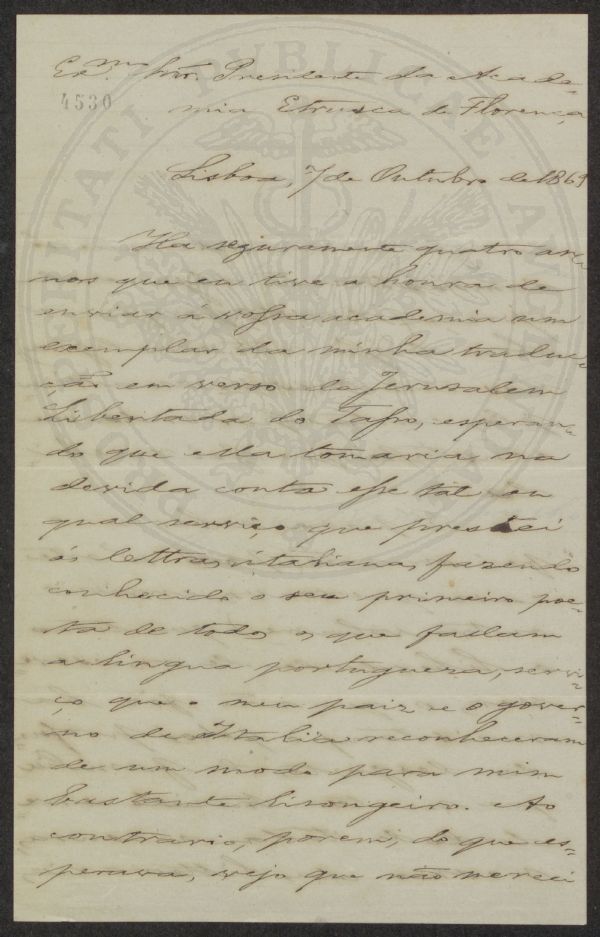 Ex.mo Snr. Presidente da Acade=
4530
mia Etrusca de Florença
Lisboa, 7 de Outubro de 1869
Ha seguramente quatro an=
nos que eu tive a honra de
enviar á vossa academia um
exemplar da minha traduc=
ção em verso da Jerusalem
Libertada do Tasso, esperan=
do que ella tomaria na
devida conta esse tal ou
qual serviço que prestei
ás lettras italianas, fazendo
conhecido o seu primeiro poe=
ta de todos os que fallam
a lingua portugueza, servi=
ço que o meu paiz e o gover=
no de Italia reconheceram
de um modo para mim
bastante lisongeiro. Ao
contrario, porem, do que es=
perava, vejo que não mereci
PUBLICAE